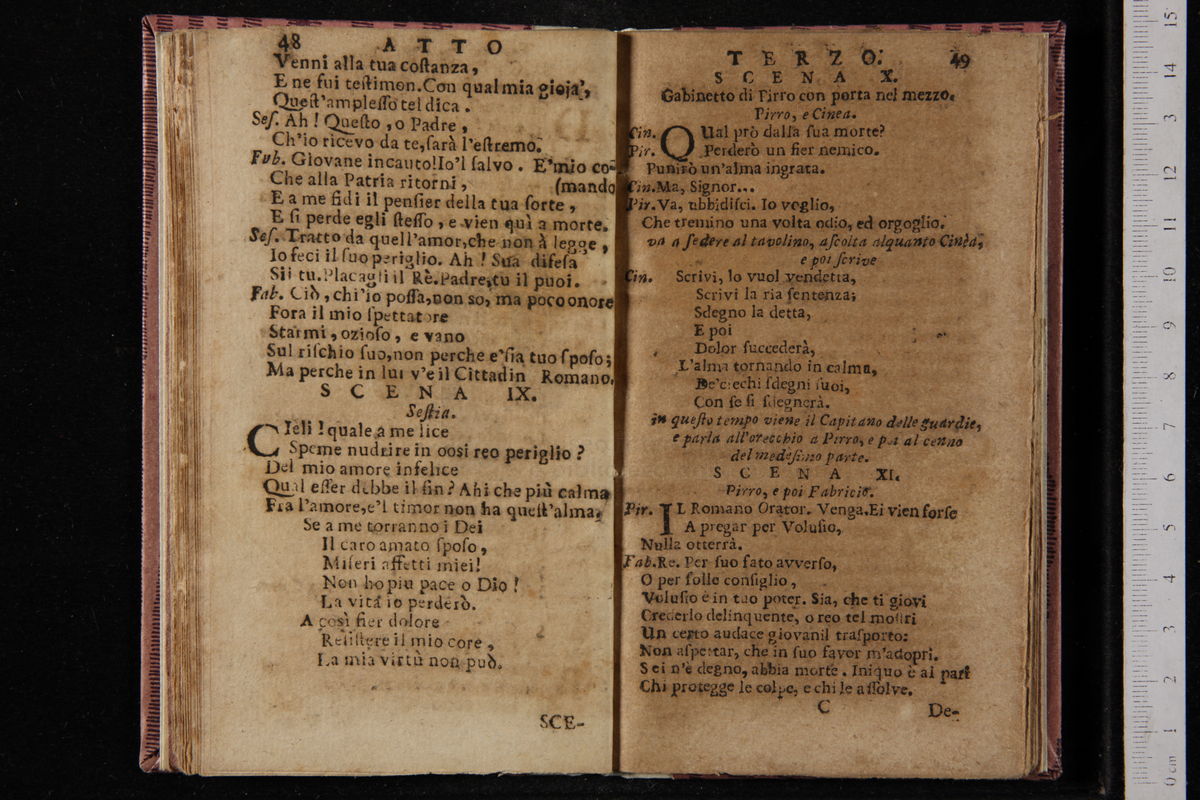 48 ATTO
Venni alla tua coſtanza,
E ne fui teſtimon. Con qual mia gioja',
Queſt'ampleſſo tel dica.
Seſ. Ah! Queſto, o Padre,
Ch'io ricevo da te, ſarà l'eſtremo.
Fab. Giovane incauto! Io'l ſalvo. E'mio co-
Che alla Patria ritorni, (mando
E a me fidi il penſier della tua ſorte,
E ſi perde egli ſteſſo, e vien quì a morte.
Seſ. Tratto da quell'amor, che non à legge,
Io feci il ſuo periglio. Ah! Sua difeſa
Sii tu. Placagli il Rè. Padre, tu il puoi.
Fab. Ciò, chi'io poſſa, non so, ma poco onore
Fora il mio ſpettatore
Starmi, ozioſo, e vano
Sul riſchio ſuo, non perche e'ſia tuo ſpoſo;
Ma perche in lui v'e il Cittadin Romano.
SCENA IX.
Seſtia.
CIeli! quale a me lice
Speme nudrire in coſi reo periglio?
Del mio amore infelice
Qual eſſer debbe il fin? Ahi che più calma
Fra l'amore, e'l timor non ha queſt'alma.
Se a me torranno i Dei
Il caro amato ſpoſo,
Miſeri affetti miei!
Non ho piu pace o Dio!
La vita io perderò.
A così fier dolore
Reſiſtere il mio core,
La mia virtù non può.
SCE-
TERZO. 49
SCENA X.
Gabinetto di Pirro con porta nel mezzo.
Pirro, e Cinea.
Cin. QUal prò dalla ſua morte?
Pir. Perderò un fier nemico.
Punirò un'alma ingrata.
Cin. Ma, Signor...
Pir. Va, ubbidiſci. Io voglio,
Che tremino una volta odio, ed orgoglio.
va a ſedere al tavolino, aſcolta alquanto Cinea,
e poi ſcrive
Cin. Scrivi, lo vuol vendetta,
Scrivi la ria ſentenza;
Sdegno la detta,
E poi
Dolor ſuccederà,
L'alma tornando in calma,
De'ciechi ſdegni ſuoi,
Con ſe ſi ſdegnerà.
in queſto tempo viene il Capitano delle guardie,
e parla all'orecchio a Pirro, e poi al cenno
del medeſimo parte.
SCENA XI.
Pirro, e poi Fabricio.
Pir. IL Romano Orator. Venga. Ei vien forſe
A pregar per Voluſio,
Nulla otterrà.
Fab. Re. Per ſuo fato avverſo,
O per folle conſiglio,
Voluſio è in tuo poter. Sia, che ti giovi
Crederlo delinquente, o reo tel moſtri
Un certo audace giovanil traſporto:
Non aſpettar, che in ſuo favor m'adopri.
S ei n'è degno, abbia morte. Iniquo è al pari
Chi protegge le colpe, e chi le aſſolve.
C De-